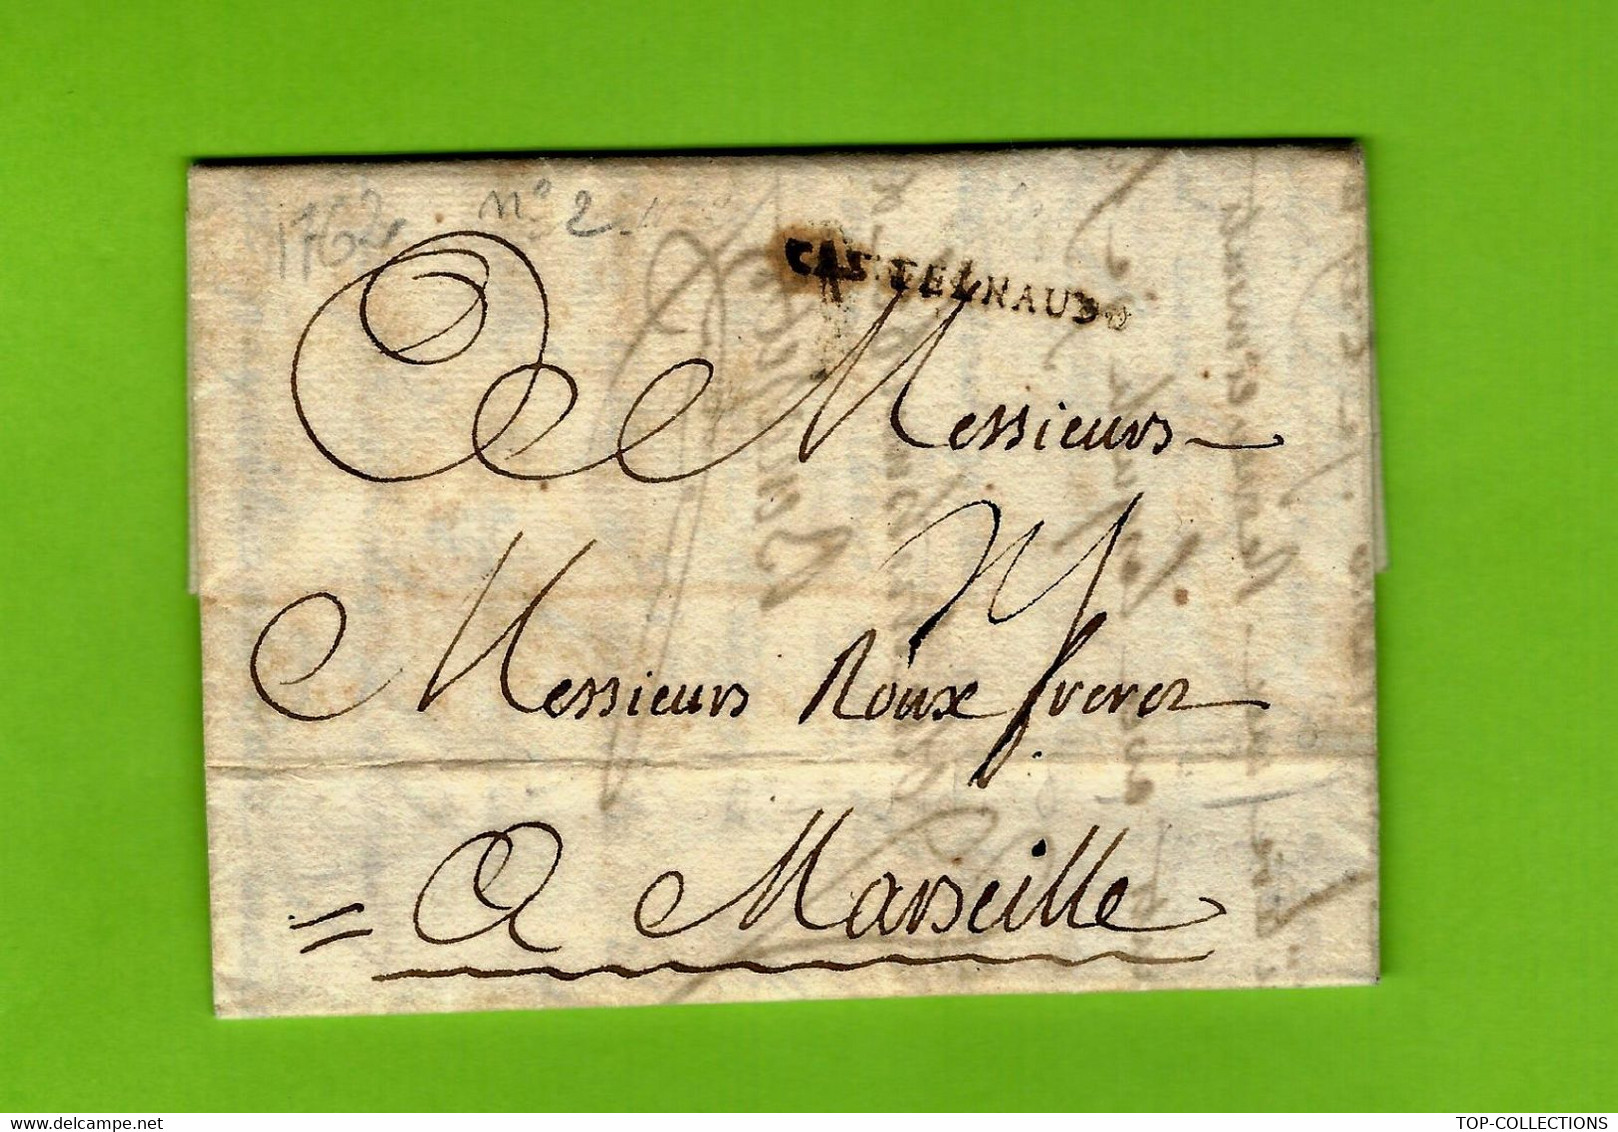 1762 n° 2
CASTELNAUD
Messieurs
Messieurs Roux freres
A Marseille
TOP-COLLECTIONS